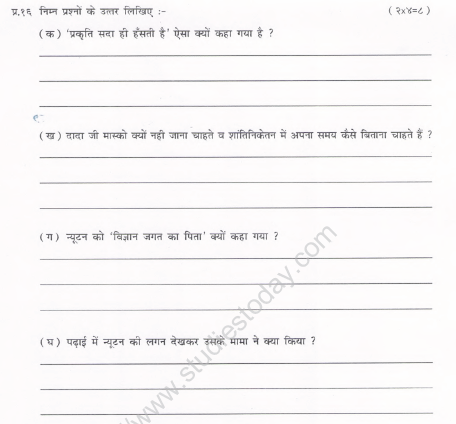 प्र.१६ निम्न प्रश्नों के उत्तर लिखिए :- (२x४=८)
(क) 'प्रकृति सदा ही हँसती है' ऐसा क्यों कहा गया है ?
(ख) दादा जी मास्को क्यों नही जाना चाहते व शांतिनिकेतन में अपना समय कैसे बिताना चाहते हैं ?
(ग) न्यूटन को 'विज्ञान जगत का पिता' क्यों कहा गया ?
(घ) पढ़ाई में न्यूटन की लगन देखकर उसके मामा ने क्या किया ?
www.studiestoday.com